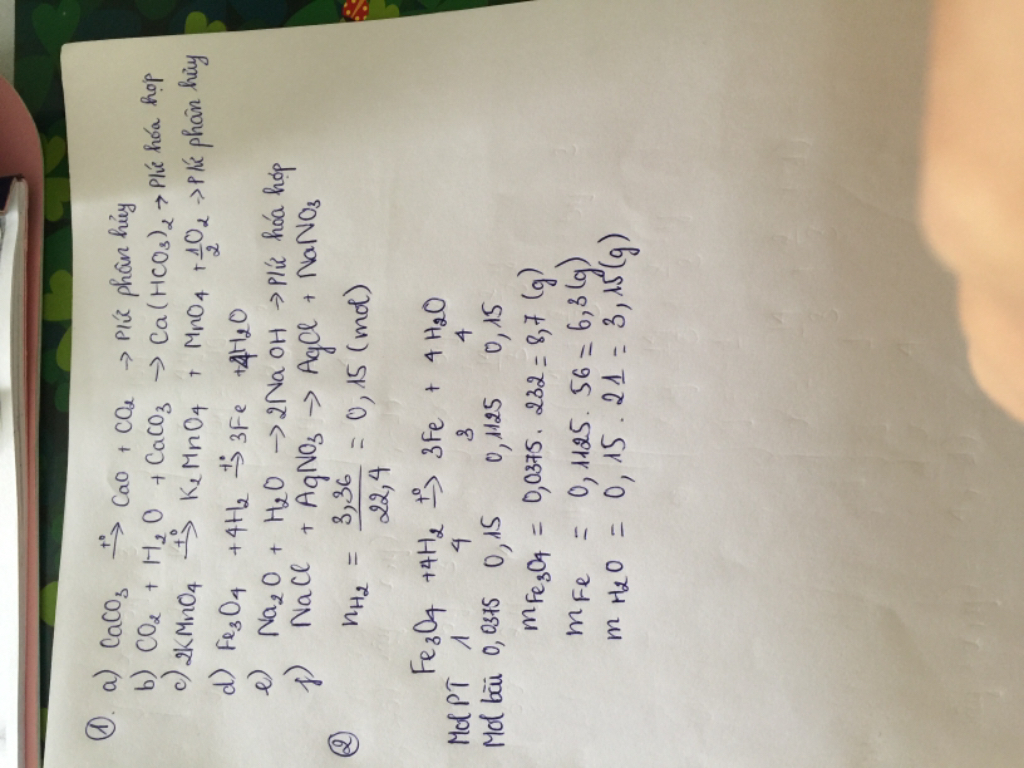 ①. a) CaCO₃ →t° CaO + CO₂ → Pứ phân hủy
b) CO₂ + H₂O + CaCO₃ → Ca(HCO₃)₂ → Pứ hóa hợp
c) 2KMnO₄ →t° K₂MnO₄ + MnO₄ + 1/2 O₂ → Pứ phân hủy
d) Fe₃O₄ + 4H₂ →t° 3Fe + 4H₂O
e) Na₂O + H₂O → 2NaOH → Pứ hóa hợp
f) NaCl + AgNO₃ → AgCl + NaNO₃
② nH₂ = 3,36/22,4 = 0,15 (mol)
Fe₃O₄ + 4H₂ →t° 3Fe + 4H₂O
Mol PT 1 4 3 4
Mol bài 0,0375 0,15 0,1125 0,15
mFe₃O₄ = 0,0375 . 232 = 8,7 (g)
mFe = 0,1125 . 56 = 6,3 (g)
mH₂O = 0,15 . 21 = 3,15 (g)